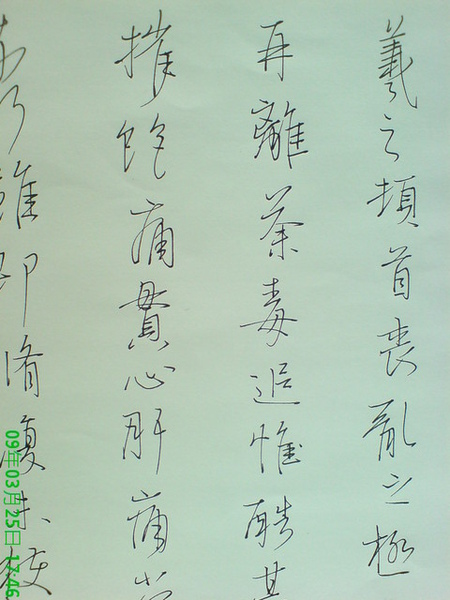 羲之頓首喪亂之極
再離荼毒追惟酷甚
摧絶痛貫心肝痛
雖即脩復未
09年03月25日 17:46